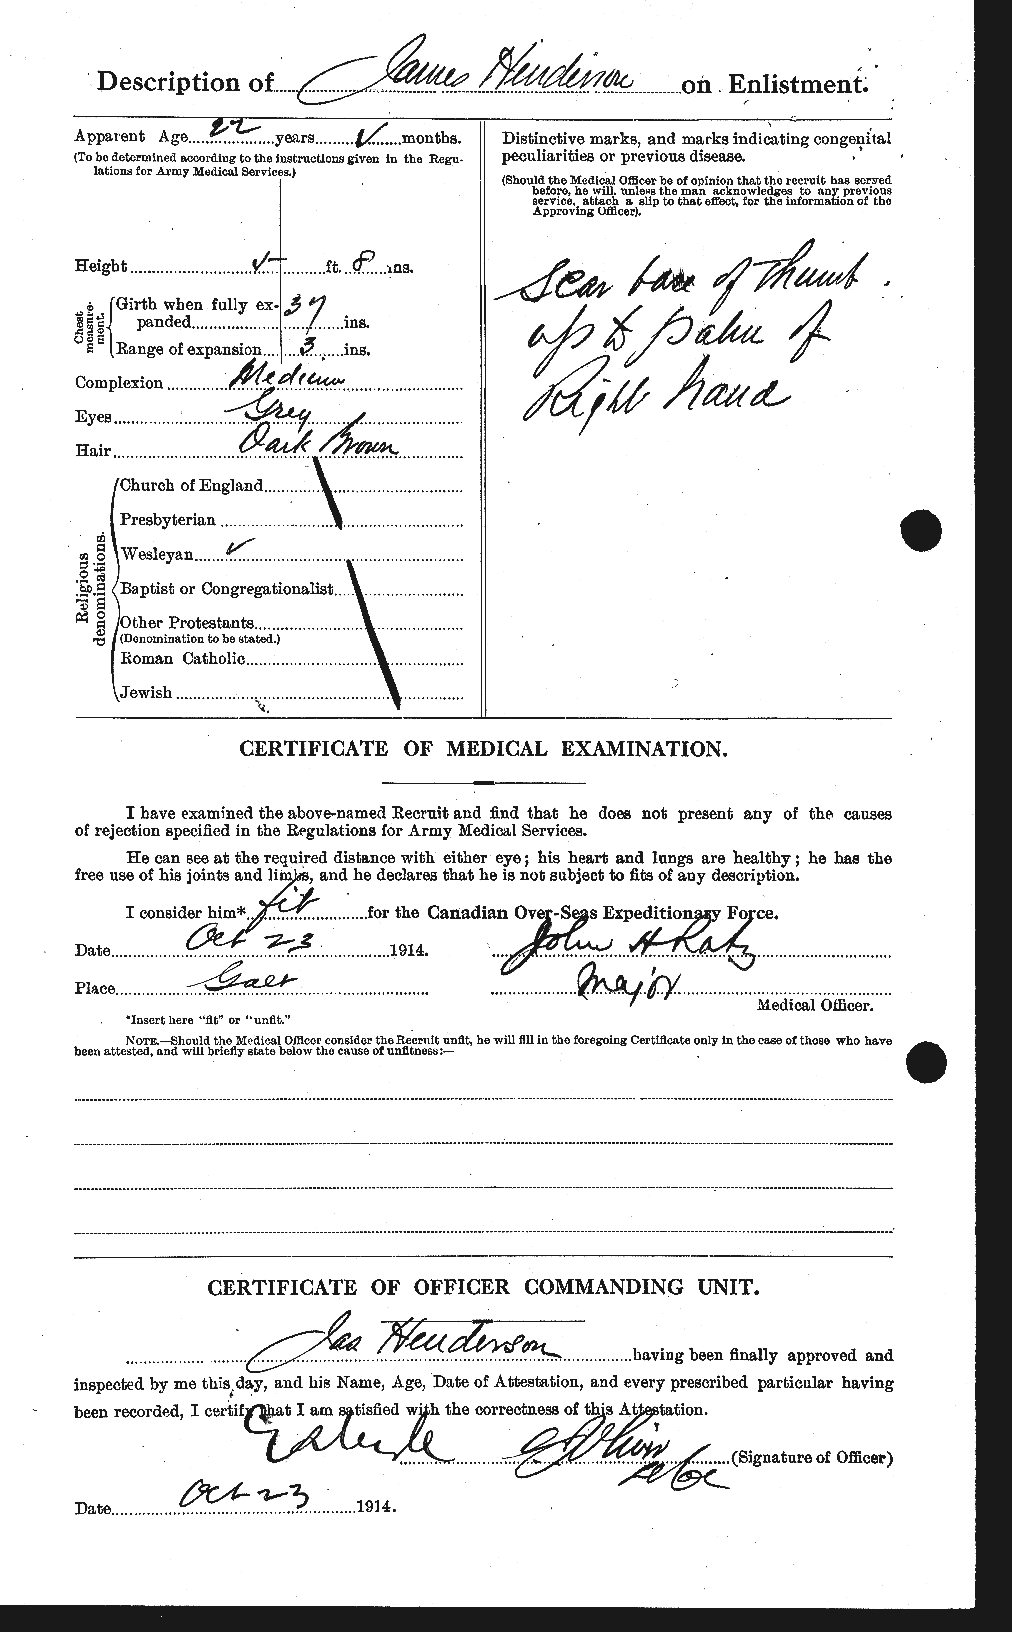 Description of James Henderson on Enlistment.
Apparent Age 22 years months.
(To be determined according to the instructions given in the Regu-
lations for Army Medical Services.)
Height 5 ft. 8 ins.
Chest measure-ment.
Girth when fully ex-
panded 37 ins.
Range of expansion 3 ins.
Complexion Medium
Eyes Grey
Hair Dark Brown
Religious denominations.
Church of England
Presbyterian
Wesleyan ✓
Baptist or Congregationalist
Other Protestants
(Denomination to be stated.)
Roman Catholic
Jewish
Distinctive marks, and marks indicating congenital
peculiarities or previous disease.
(Should the Medical Officer be of opinion that the recruit has served
before, he will, unless the man acknowledges to any previous
service, attach a slip to that effect, for the information of the
Approving Officer).
Scar base of Thumb
up to palm of
Right hand
CERTIFICATE OF MEDICAL EXAMINATION.
I have examined the above-named Recruit and find that he does not present any of the causes
of rejection specified in the Regulations for Army Medical Services.
He can see at the required distance with either eye; his heart and lungs are healthy; he has the
free use of his joints and limbs, and he declares that he is not subject to fits of any description.
I consider him* fit for the Canadian Over-Seas Expeditionary Force.
Date Oct 23 1914.
John H Ratz
Place Galt
Major
Medical Officer.
*Insert here "fit" or "unfit."
NOTE.—Should the Medical Officer consider the Recruit unfit, he will fill in the foregoing Certificate only in the case of those who have
been attested, and will briefly state below the cause of unfitness:—
CERTIFICATE OF OFFICER COMMANDING UNIT.
Jas Henderson having been finally approved and
inspected by me this day, and his Name, Age, Date of Attestation, and every prescribed particular having
been recorded, I certify that I am satisfied with the correctness of this Attestation.
(Signature of Officer)
Date Oct 23 1914.